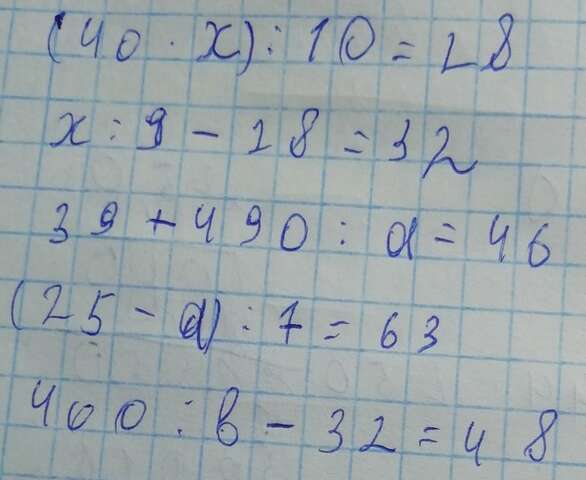 (40 · x) : 10 = 28
x : 9 - 28 = 32
39 + 490 : a = 46
(25 - a) : 7 = 63
400 : в - 32 = 48